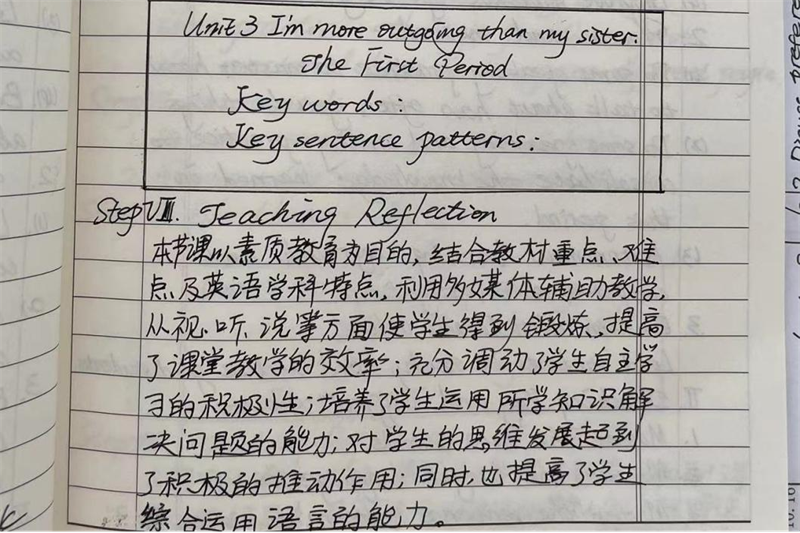 Unit 3 I'm more outgoing than my sister.
The First Period
Key words:
Key sentence patterns:
Step VIII. Teaching Reflection
本节课以素质教育为目的,结合教材重点、难
点及英语学科特点,利用多媒体辅助教学,
从视、听、说等方面使学生得到锻炼,提高
了课堂教学的效率;充分调动了学生自主学
习的积极性;培养了学生运用所学知识解
决问题的能力;对学生的思维发展起到
了积极的推动作用;同时,也提高了学生
综合运用语言的能力。
Discuss prefere